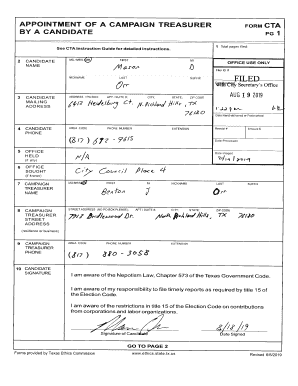 APPOINTMENT OF A CAMPAIGN TREASURER
BY A CANDIDATE
FORM CTA
PG 1
See CTA Instruction Guide for detailed instructions.
1 Total pages filed:
2 CANDIDATE NAME
MS / MRS / MR FIRST MI
Mason D
NICKNAME LAST SUFFIX
Orr
OFFICE USE ONLY
FILED
City Secretary's Office
AUG 19 2019
3 CANDIDATE MAILING ADDRESS
ADDRESS / PO BOX; APT / SUITE #; CITY; STATE; ZIP CODE
6612 Heidelburg Ct. N. Richland Hills, TX
76180
4 CANDIDATE PHONE
AREA CODE PHONE NUMBER EXTENSION
(817)
5 OFFICE HELD (if any)
N/A
6 OFFICE SOUGHT (if known)
City Council Place 4
7 CAMPAIGN TREASURER NAME
FIRST MI NICKNAME LAST SUFFIX
Benton J Orr
8 CAMPAIGN TREASURER STREET ADDRESS
(residence or business)
STREET ADDRESS (NO PO BOX PLEASE); APT / SUITE #; CITY; STATE; ZIP CODE
North Richland Hills, TX 76180
9 CAMPAIGN TREASURER PHONE
AREA CODE PHONE NUMBER EXTENSION
(817) 880-3058
10 CANDIDATE SIGNATURE
I am aware of the Nepotism Law, Chapter 573 of the Texas Government Code.
I am aware of my responsibility to file timely reports as required by title 15 of
the Election Code.
I am aware of the restrictions in title 15 of the Election Code on contributions
from corporations and labor organizations.
8/18/19
Signature of Candidate Date Signed
GO TO PAGE 2
Forms provided by Texas Ethics Commission www.ethics.state.tx.us Revised 8/6/2019